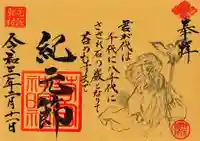 奉拝
君が代は
千代に八千代に
さざれ石の巌となりて
苔のむすまで
紀元節
令和三年二月十一日